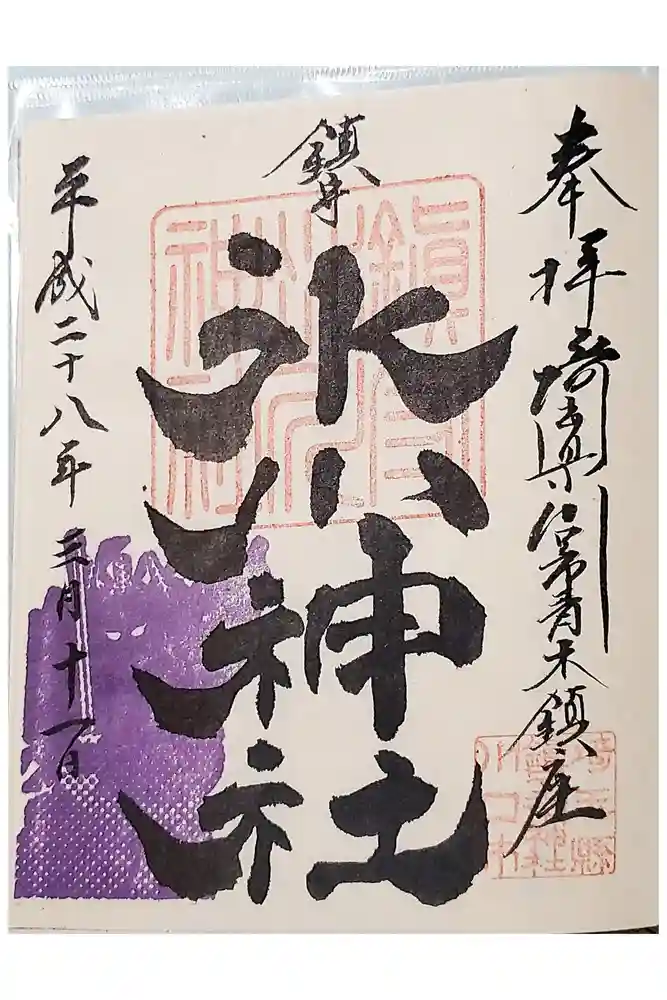 奉拝 埼玉県川口市青木鎮座
鎮守
氷川神社
平成二十八年三月十一日
鎮守
氷川
神社